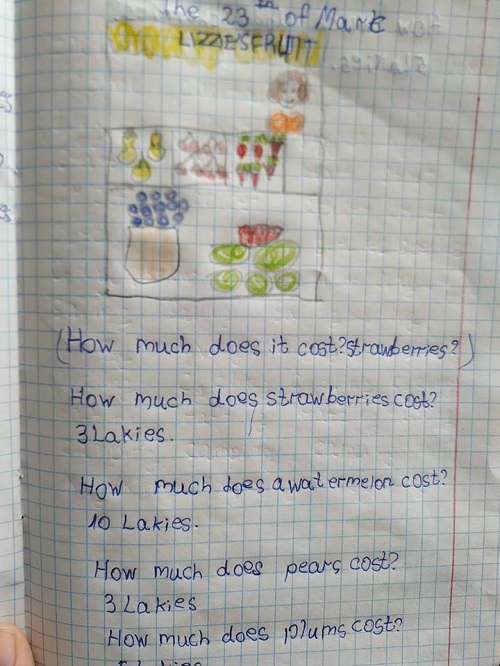 The 23th of Mark
LIZZIESFRUIT
(How much does it cost? strawberries?)
How much does strawberries cost?
3 Lakies.
How much does a watermelon cost?
10 Lakies.
How much does pears cost?
3 Lakies
How much does plums cost?
Lakies